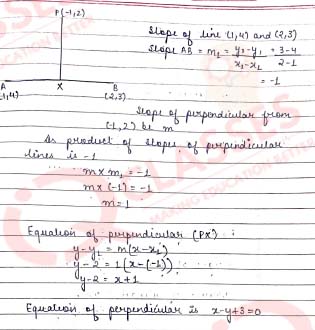 P(-1,2)
A
(1,4)
X
B
(2,3)
Slope of line (1,4) and (2,3)
Slope AB = m₁ = y₂-y₁/x₂-x₁ = 3-4/2-1
= -1
Slope of perpendicular from
(-1,2) be m
As product of slopes of perpendicular
lines is -1
m x m₁ = -1
m x (-1) = -1
m = 1
Equation of perpendicular (PX) :
y-y₁ = m(x-x₁)
y-2 = 1(x-(-1))
y-2 = x+1
Equation of perpendicular is x-y+3=0
CLASSES
MAKING EDUCATION BETTER